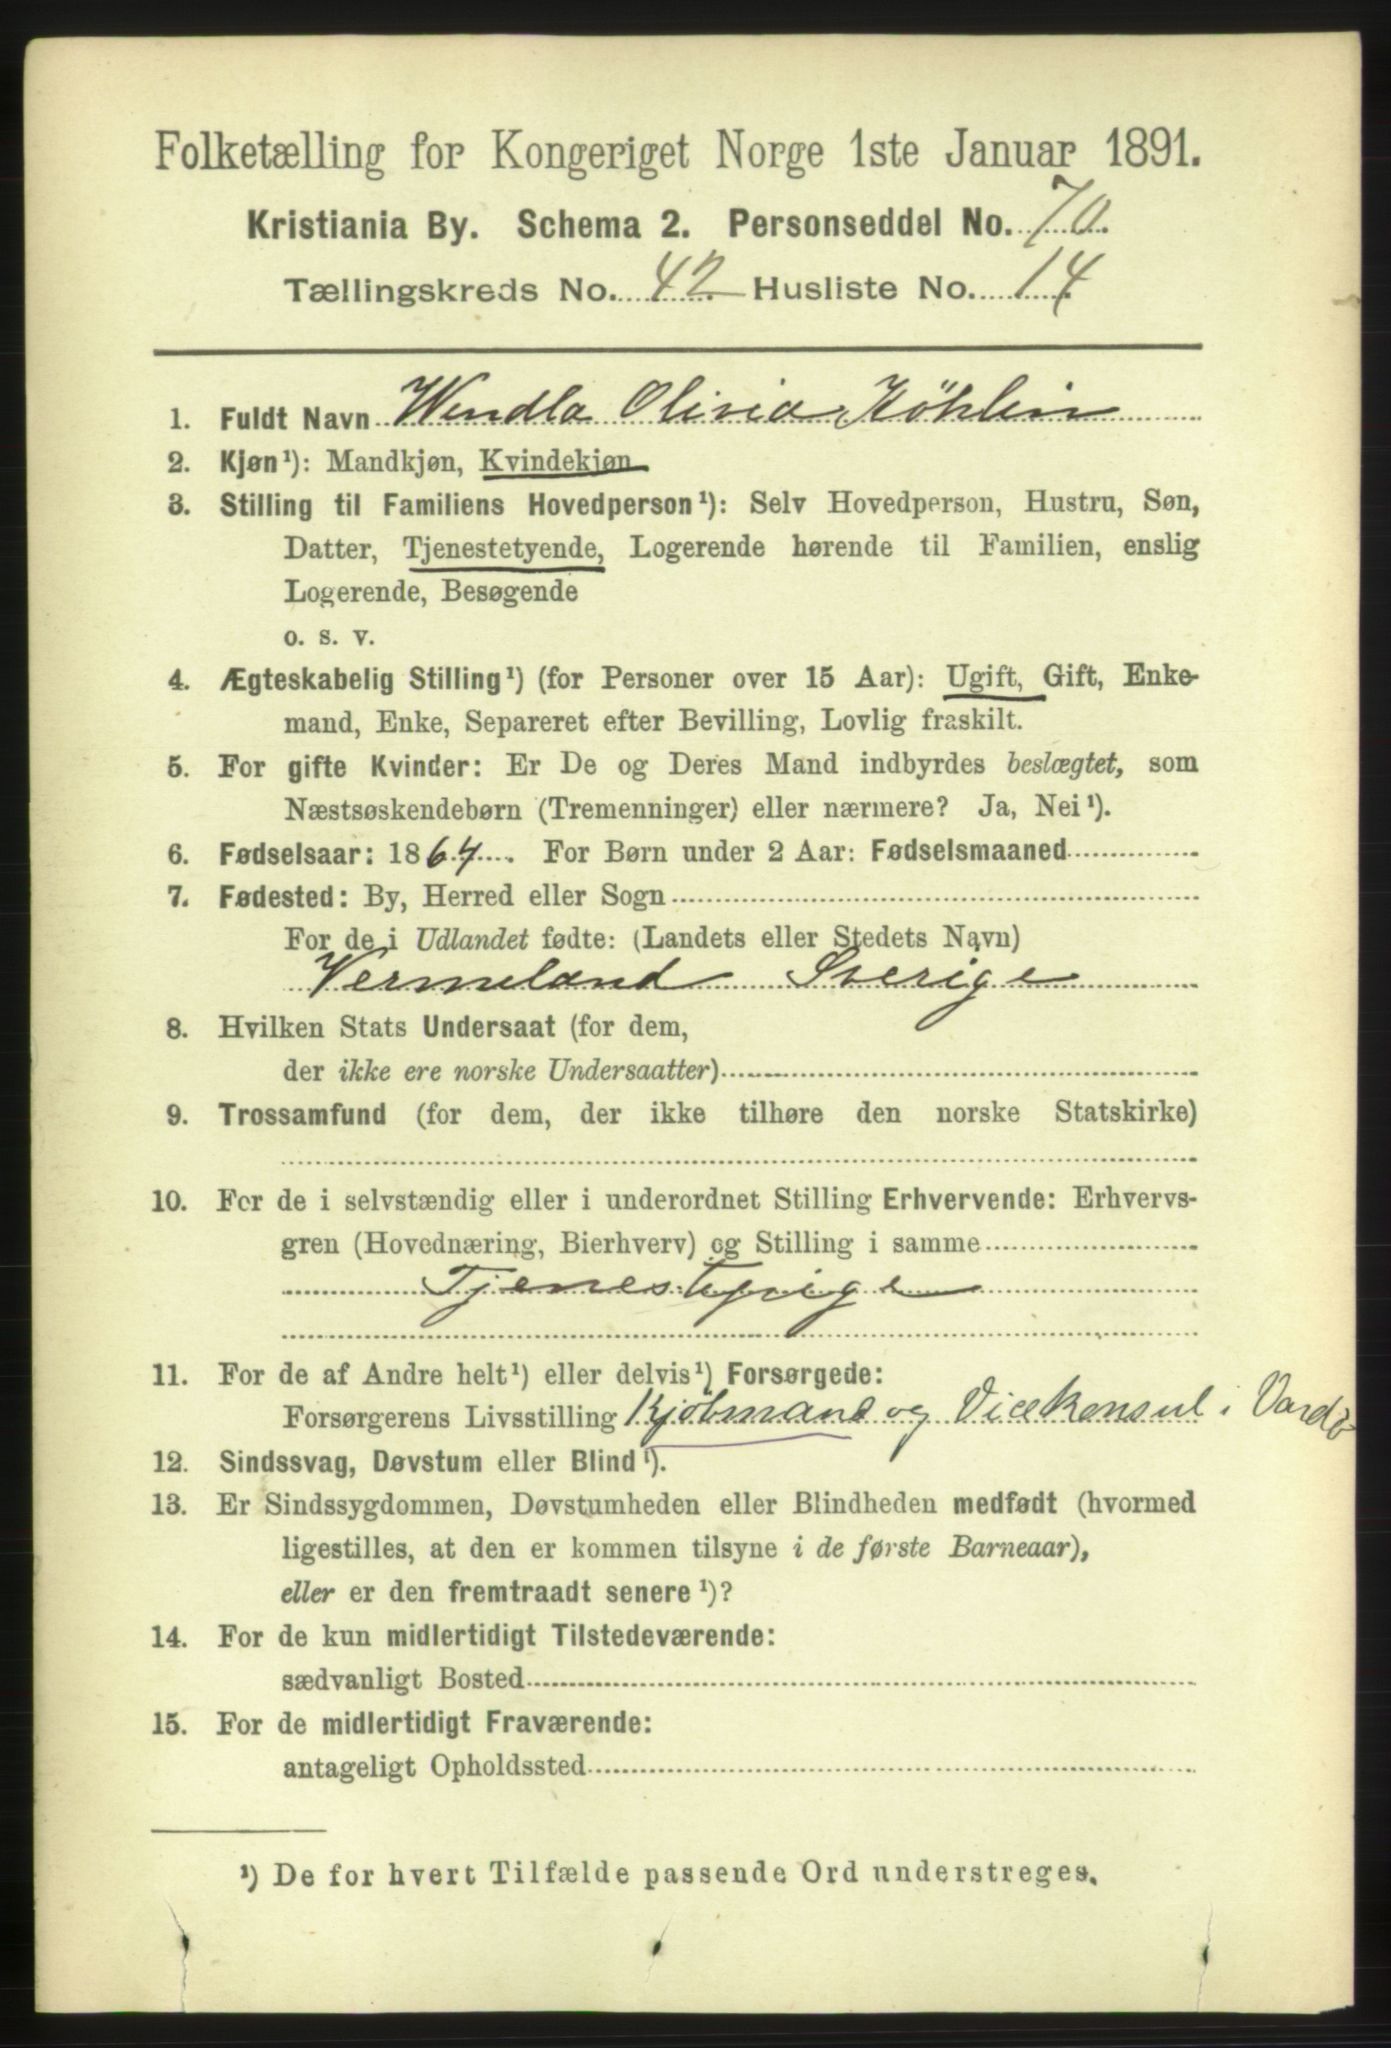 Folketælling for Kongeriget Norge 1ste Januar 1891.
Kristiania By. Schema 2. Personseddel No. 70.
Tællingskreds No. 42 Husliste No. 14
1. Fuldt Navn Wendla Olivia Köhlin
2. Kjøn¹): Mandkjøn, Kvindekjøn
3. Stilling til Familiens Hovedperson¹): Selv Hovedperson, Hustru, Søn,
Datter, Tjenestetyende, Logerende hørende til Familien, enslig
Logerende, Besøgende
o. s. v.
4. Ægteskabelig Stilling¹) (for Personer over 15 Aar): Ugift, Gift, Enke-
mand, Enke, Separeret efter Bevilling, Lovlig fraskilt.
5. For gifte Kvinder: Er De og Deres Mand indbyrdes beslægtet, som
Næstsøskendebørn (Tremenninger) eller nærmere? Ja, Nei¹).
6. Fødselsaar: 1864. For Børn under 2 Aar: Fødselsmaaned
7. Fødested: By, Herred eller Sogn
For de i Udlandet fødte: (Landets eller Stedets Navn)
Vermeland Sverige
8. Hvilken Stats Undersaat (for dem,
der ikke ere norske Undersaatter)
9. Trossamfund (for dem, der ikke tilhøre den norske Statskirke)
10. For de i selvstændig eller i underordnet Stilling Erhvervende: Erhvervs-
gren (Hovednæring, Bierhverv) og Stilling i samme
Tjenestepige
11. For de af Andre helt¹) eller delvis¹) Forsørgede:
Forsørgerens Livsstilling Kjöbmand og Vicekonsul i Vardö
12. Sindssvag, Døvstum eller Blind¹).
13. Er Sindssygdommen, Døvstumheden eller Blindheden medfødt (hvormed
ligestilles, at den er kommen tilsyne i de første Barneaar),
eller er den fremtraadt senere¹)?
14. For de kun midlertidigt Tilstedeværende:
sædvanligt Bosted
15. For de midlertidigt Fraværende:
antageligt Opholdssted
¹) De for hvert Tilfælde passende Ord understreges.